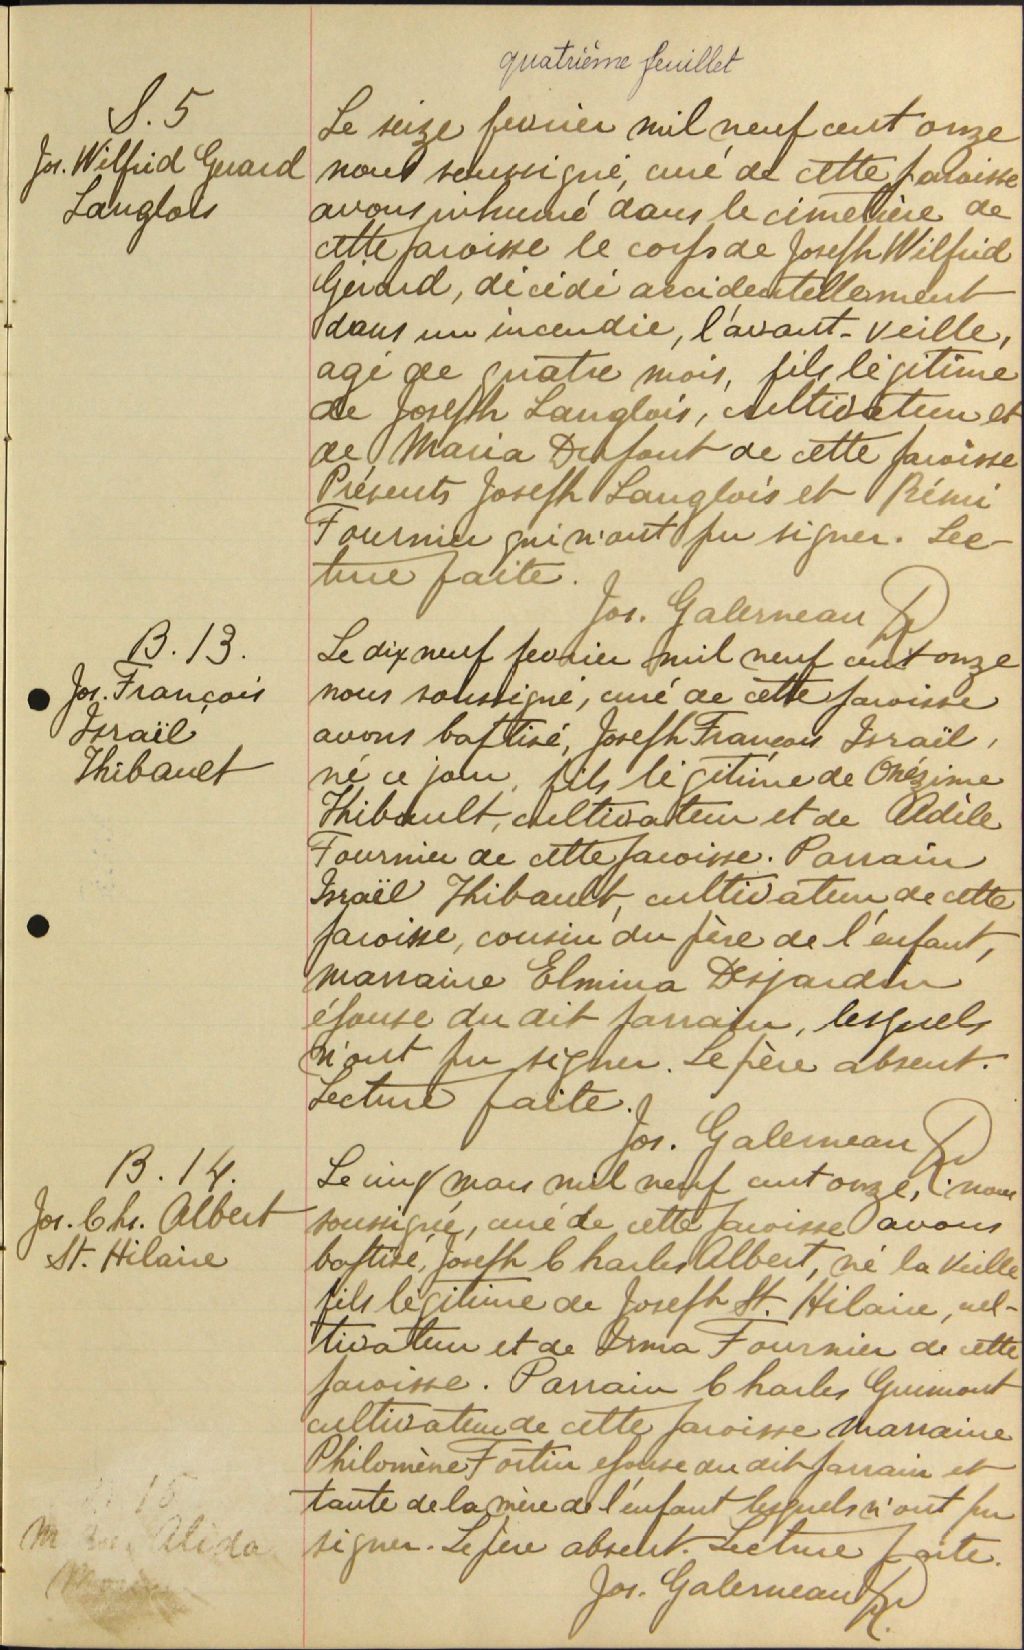 quatrième feuillet
S. 5
Jos. Wilfrid Gerard
Langlois
Le seize fevrier mil neuf cent onze
nous soussigné, curé de cette paroisse
avons inhumé dans le cimetière de
cette paroisse le corps de Joseph Wilfrid
Gérard, décédé accidentellement
dans un incendie, l'avant-veille,
agé de quatre mois, fils légitime
de Joseph Langlois, cultivateur et
de Maria Dupont de cette paroisse
Présents Joseph Langlois et Rémi
Fournier qui n'ont pu signer. Lec-
ture faite.
Jos. Galerneau Ptr
B. 13.
Jos. François
Israël
Thibault
Le dix neuf fevrier mil neuf cent onze
nous soussigné, curé de cette paroisse
avons baptisé, Joseph François Israël,
né ce jour, fils légitime de Onézime
Thibault, cultivateur et de Adèle
Fournier de cette paroisse. Parrain
Israël Thibault, cultivateur de cette
paroisse, cousin du père de l'enfant,
marraine Elmina Desjardin
épouse du dit parrain, lesquels
n'ont pu signer. Le père absent.
Lecture faite.
Jos. Galerneau Ptr
B. 14.
Jos. Chs. Albert
St. Hilaire
Le cinq mars mil neuf cent onze, nous
soussigné, curé de cette paroisse avons
baptisé, Joseph Charles Albert, né la veille
fils légitime de Joseph St. Hilaire, cul-
tivateur et de Irma Fournier de cette
paroisse. Parrain Charles Guimont
cultivateur de cette paroisse marraine
Philomène Fortin epouse du dit parrain et
tante de la mère de l'enfant lesquels n'ont pu
signer. Le père absent. Lecture faite.
Jos. Galerneau Ptr.
15
M Alida